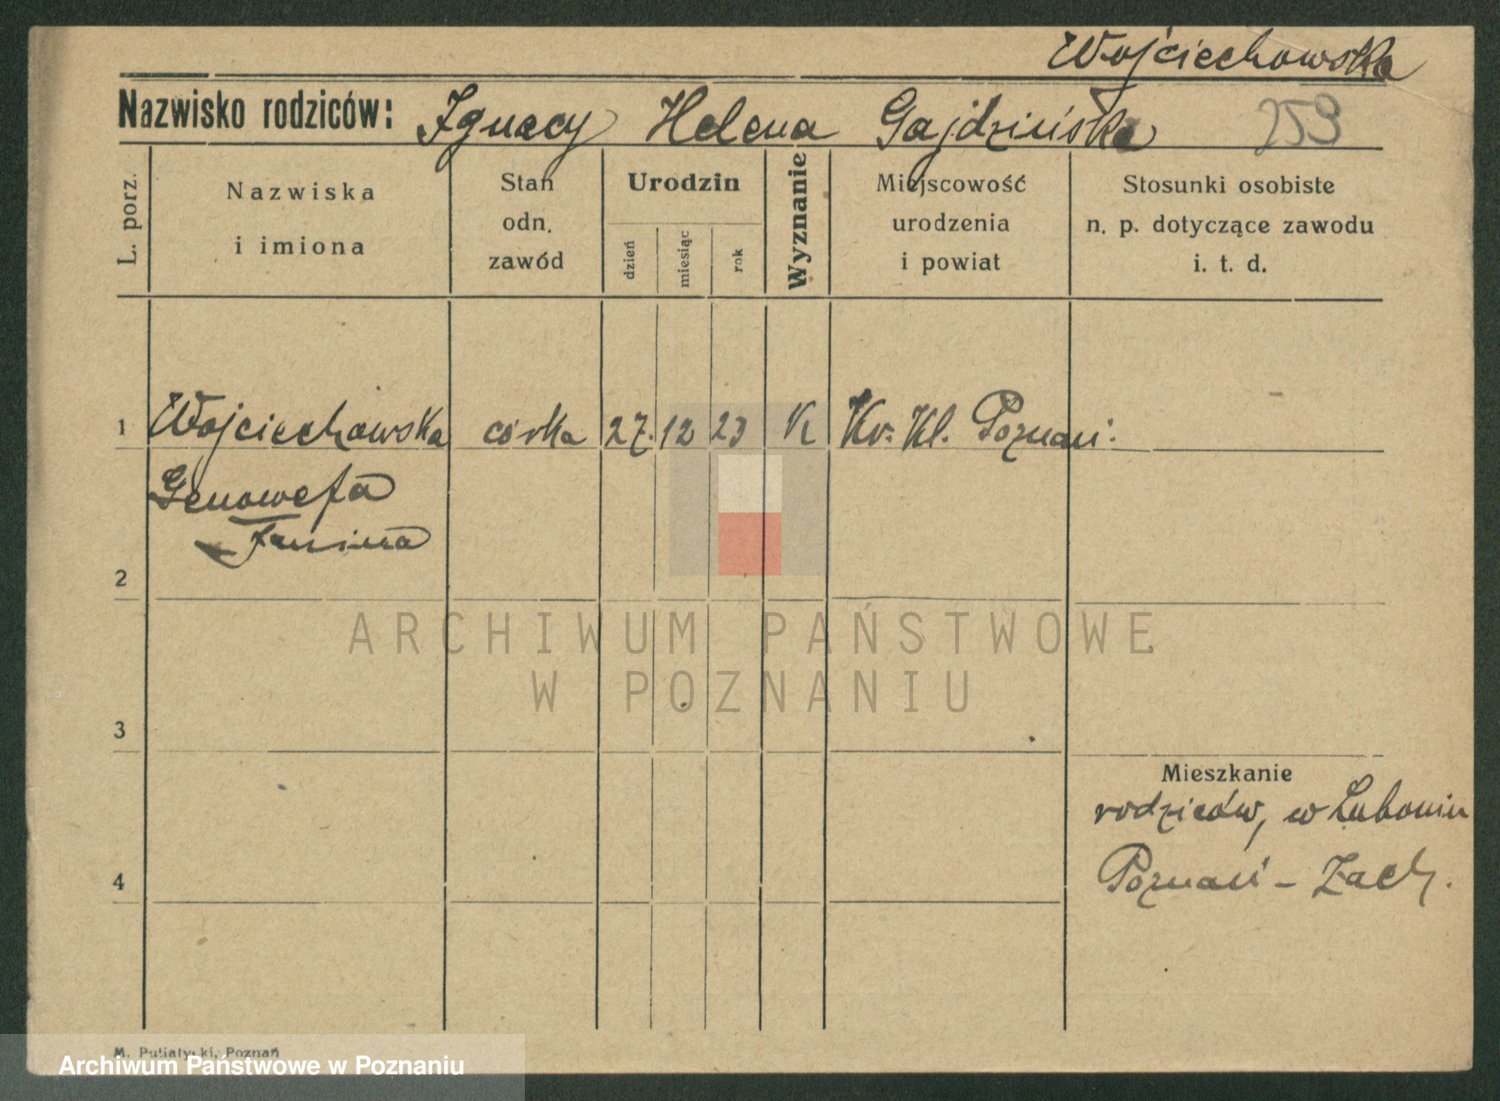 Wojciechowska
Nazwisko rodziców: Ignacy Helena Gajdzińska 259
L. porz.
Nazwiska
i imiona
Stan
odn.
zawód
Urodzin
dzień
miesiąc
rok
Wyznanie
Miejscowość
urodzenia
i powiat
Stosunki osobiste
n. p. dotyczące zawodu
i. t. d.
1 Wojciechowska córka 27. 12 23 K Kr. Kl. Poznań.
Genowefa
Janina
2
ARCHIWUM PAŃSTWOWE
W POZNANIU
3
Mieszkanie
rodziców, w Luboniu
4 Poznań - Zach.
M. Putiatycki, Poznań
Archiwum Państwowe w Poznaniu